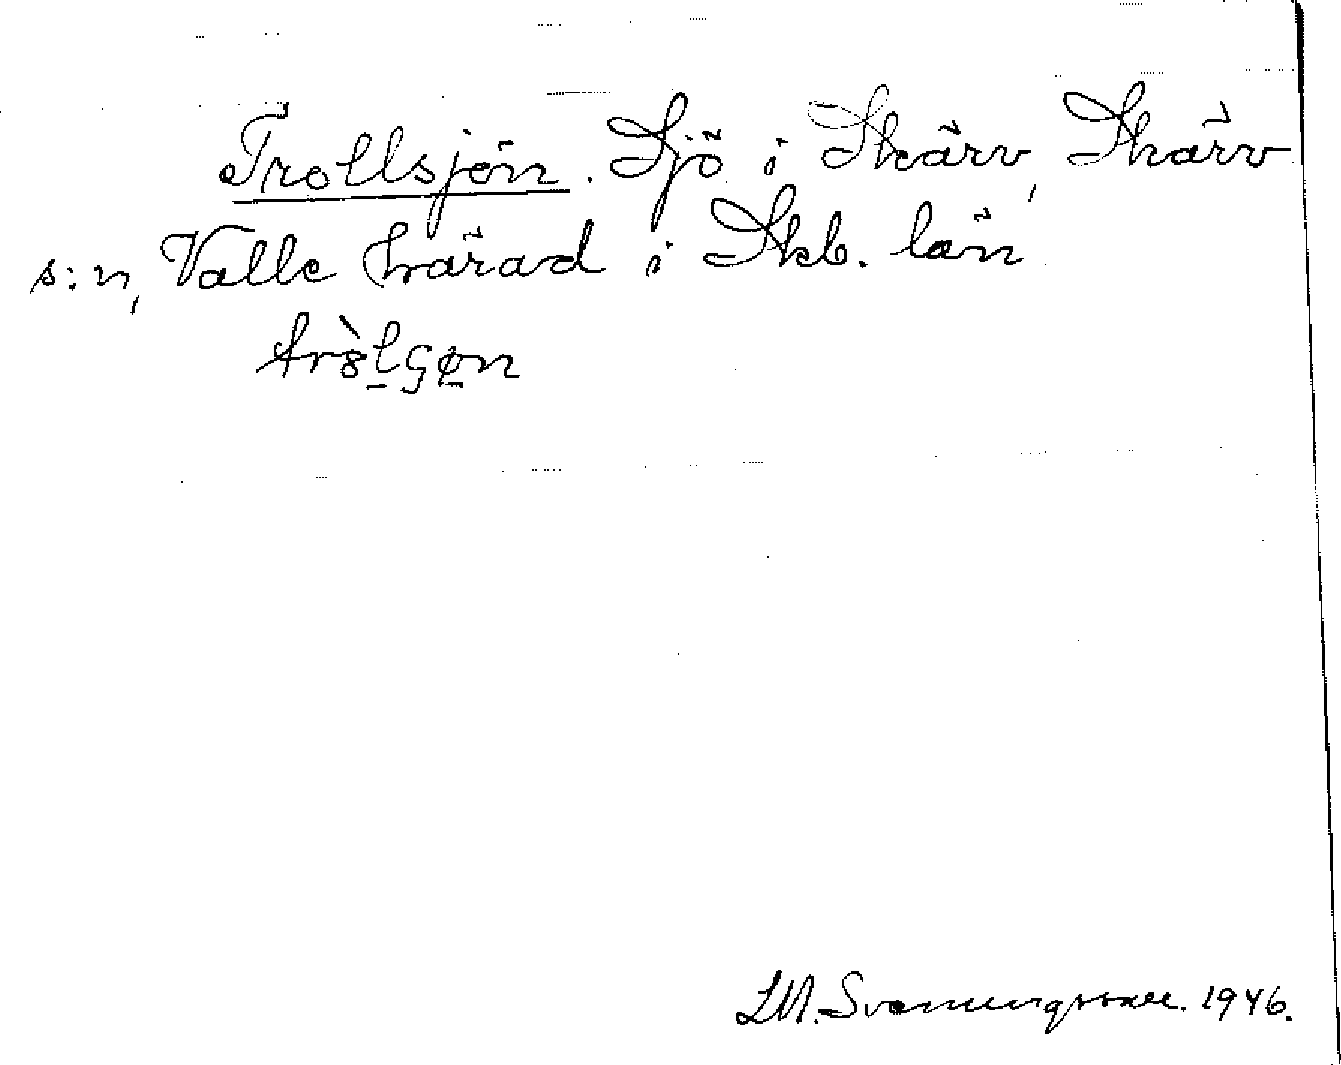 Trollsjön. Sjö i Skärv, Skärv
s:n, Valle härad i Skb. län
L.M. Svenungsson. 1946.